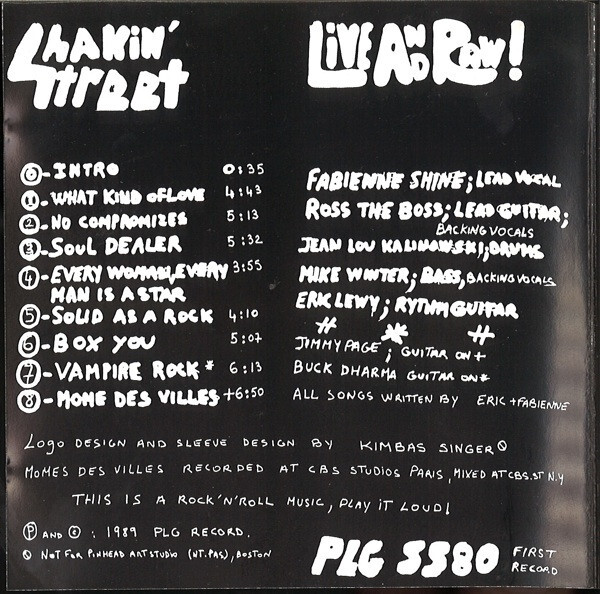 SHAKIN'
STREET
LIVE AND RAW!
0-INTRO 0:35
1-WHAT KIND OF LOVE 4:43
2-NO COMPROMIZES 5:13
3-SOUL DEALER 5:32
4-EVERY WOMAN, EVERY 3:55
MAN IS A STAR
5-SOLID AS A ROCK 4:10
6-BOX YOU 5:07
7-VAMPIRE ROCK* 6:13
8-MOME DES VILLES+6:50
FABIENNE SHINE; LEAD VOCAL
ROSS THE BOSS; LEAD GUITAR;
BACKING VOCALS
JEAN LOU KALINOWSKI; DRUMS
MIKE WINTER; BASS, BACKING VOCALS
ERIC LEWY; RYTHM GUITAR
# * #
JIMMY PAGE; GUITAR ON +
BUCK DHARMA GUITAR ON *
ALL SONGS WRITTEN BY ERIC + FABIENNE
LOGO DESIGN AND SLEEVE DESIGN BY KIMBAS SINGER
MOMES DES VILLES RECORDED AT CBS STUDIOS PARIS, MIXED AT CBS.ST N.Y
THIS IS A ROCK'N'ROLL MUSIC, PLAY IT LOUD!
Ⓟ AND © : 1989 PLG RECORD.
NOT FOR PINHEAD ART STUDIO (NT.PAS), BOSTON
PLG SS80 FIRST
RECORD